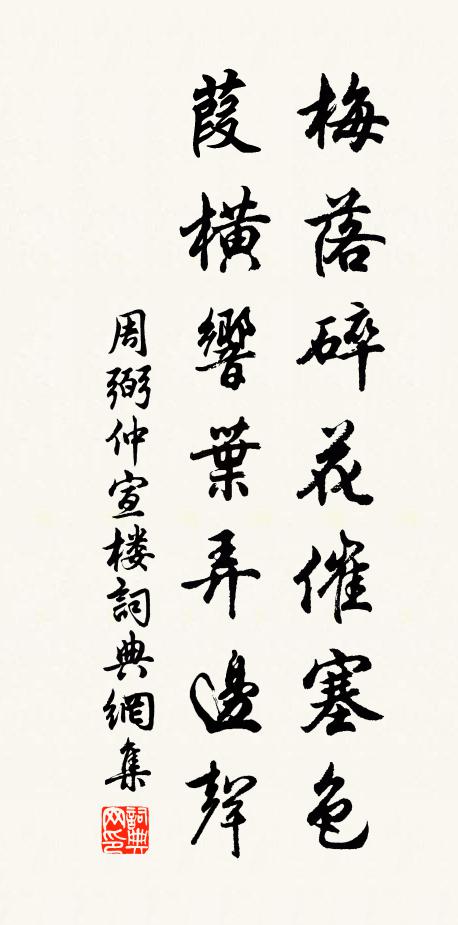 梅落碎花催塞色
葭橫響葉弄邊聲
周弼仲宣楼詞典網集
詞典
网印